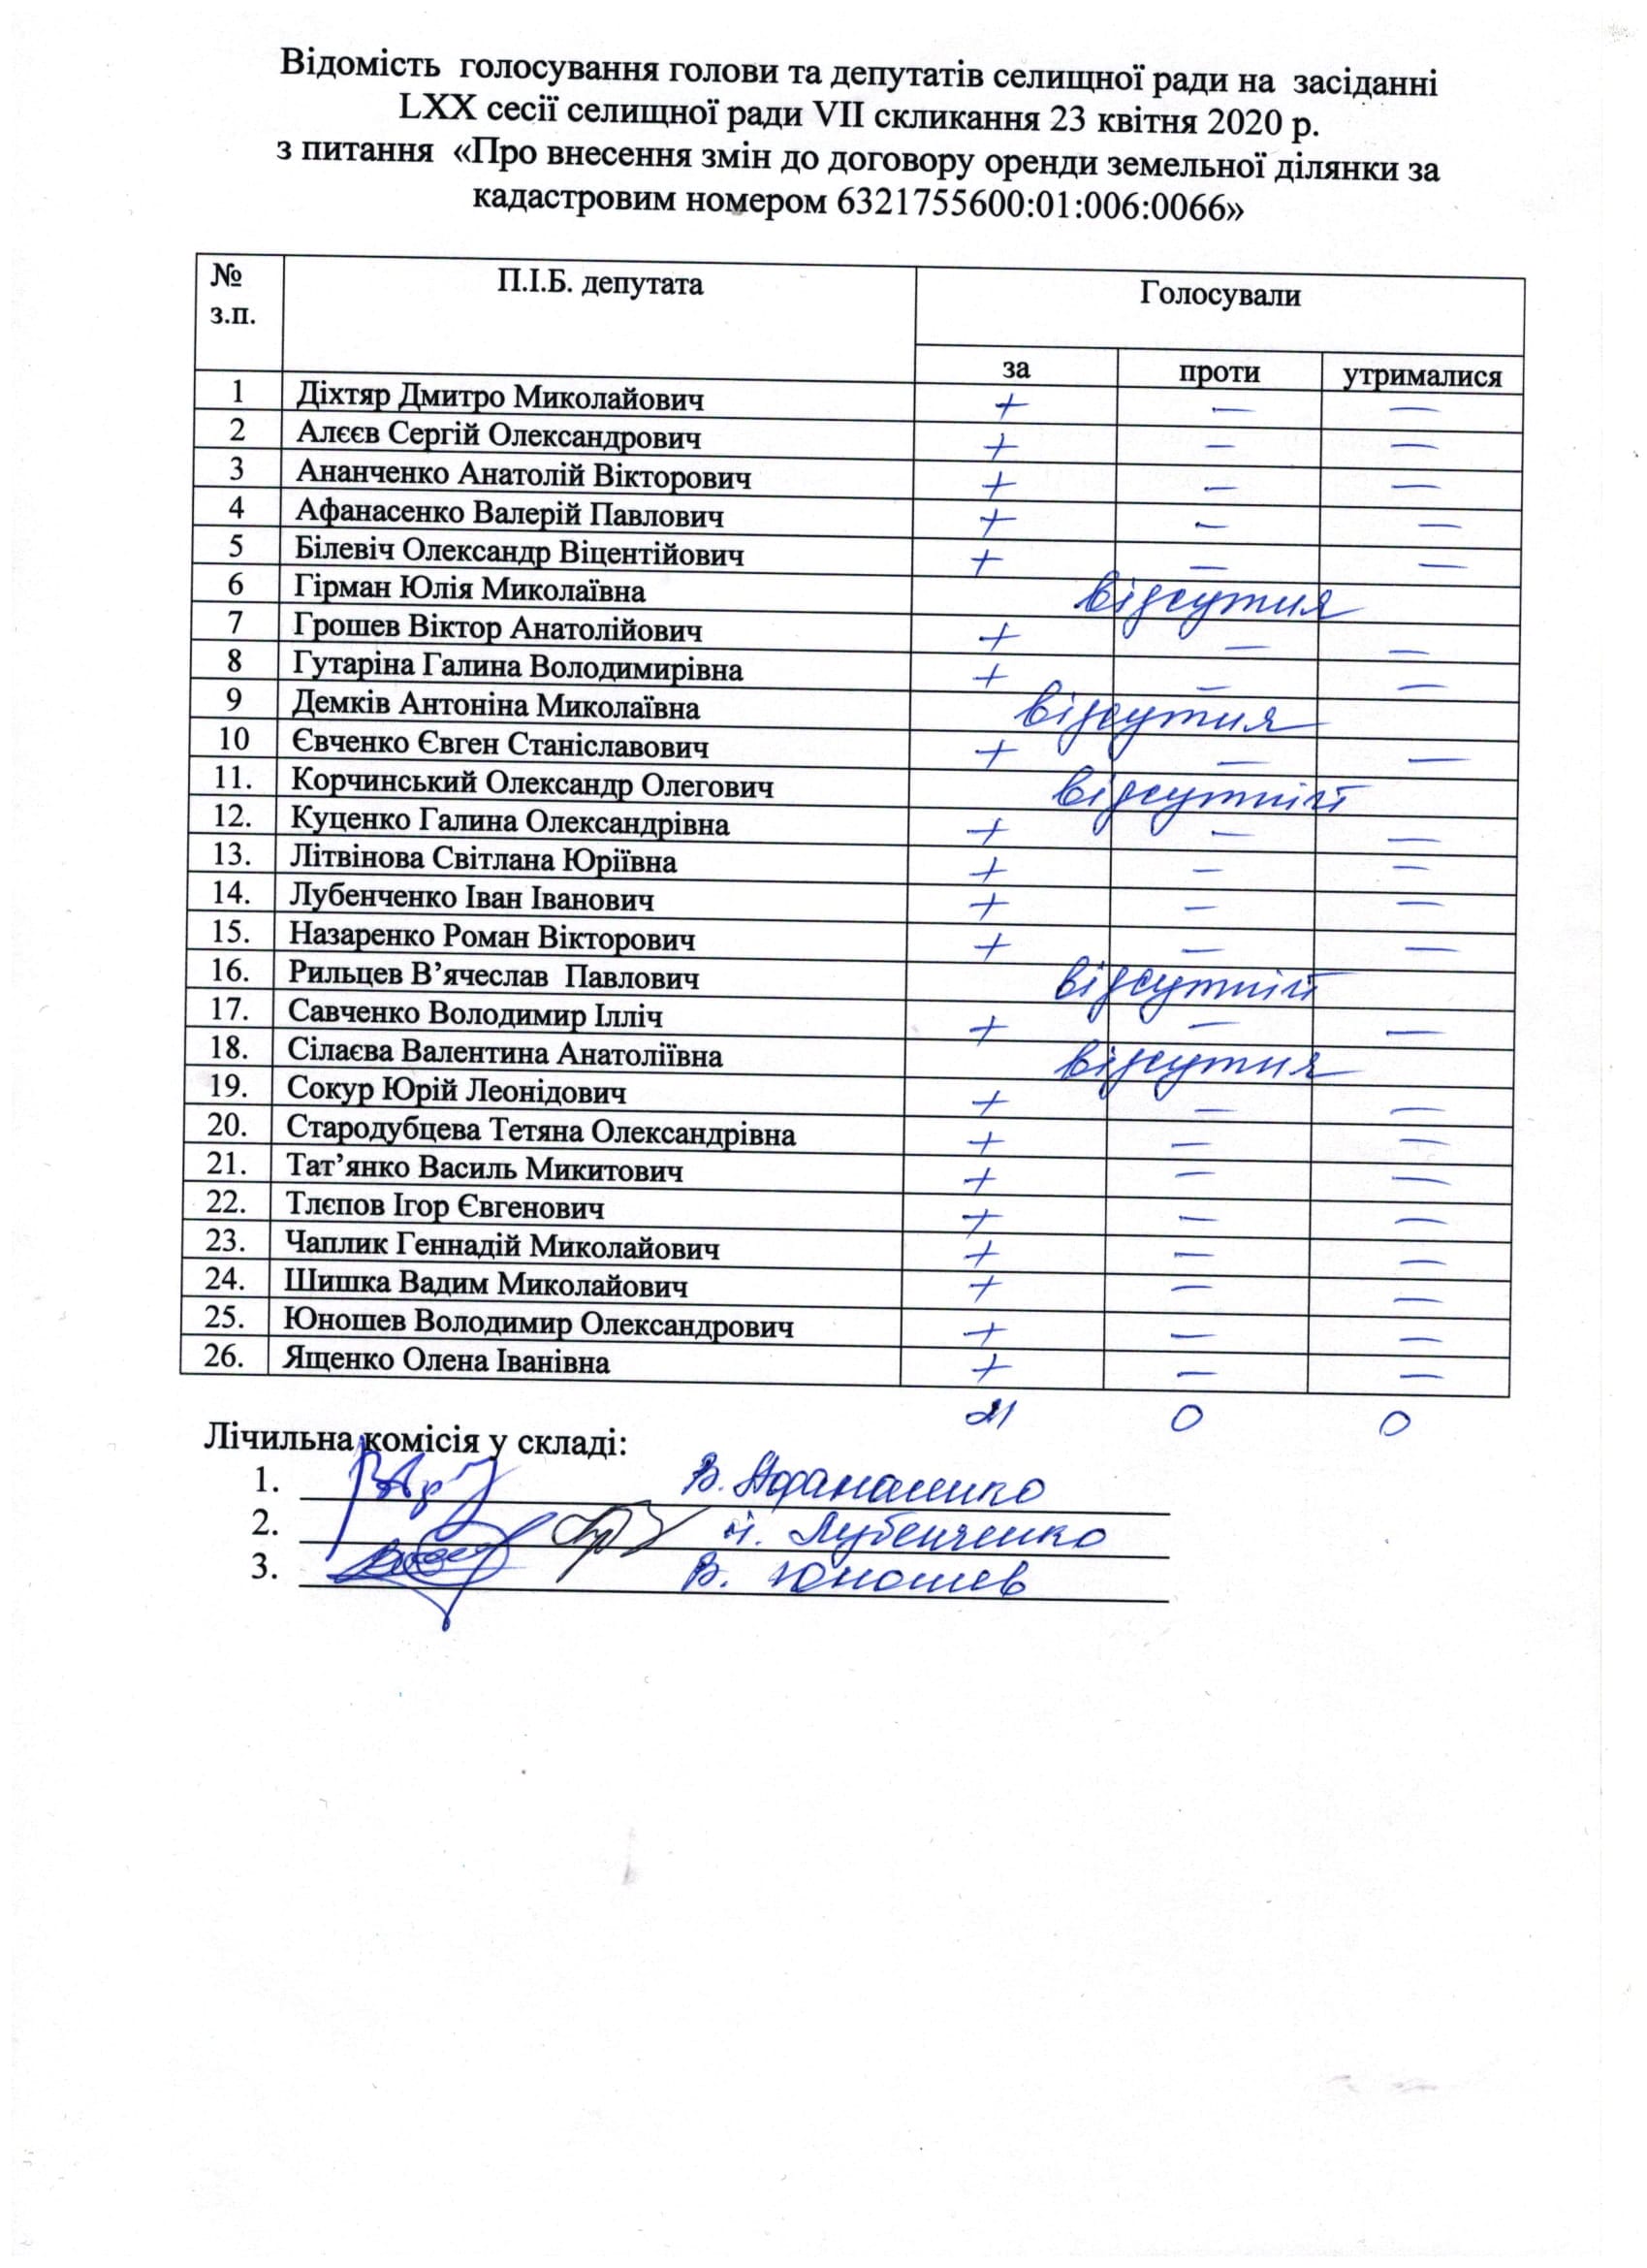 Відомість голосування голови та депутатів селищної ради на засіданні
LXX сесії селищної ради VII скликання 23 квітня 2020 р.
з питання «Про внесення змін до договору оренди земельної ділянки за
кадастровим номером 6321755600:01:006:0066»
№ з.п. П.І.Б. депутата Голосували
за проти утрималися
1 Діхтяр Дмитро Миколайович + — —
2 Алєєв Сергій Олександрович + — —
3 Ананченко Анатолій Вікторович + — —
4 Афанасенко Валерій Павлович + — —
5 Білевіч Олександр Віцентійович + — —
6 Гірман Юлія Миколаївна відсутня
7 Грошев Віктор Анатолійович + — —
8 Гутаріна Галина Володимирівна + — —
9 Демків Антоніна Миколаївна відсутня
10 Євченко Євген Станіславович + — —
11. Корчинський Олександр Олегович відсутній
12. Куценко Галина Олександрівна + — —
13. Літвінова Світлана Юріївна + — —
14. Лубенченко Іван Іванович + — —
15. Назаренко Роман Вікторович + — —
16. Рильцев В’ячеслав Павлович відсутній
17. Савченко Володимир Ілліч + — —
18. Сілаєва Валентина Анатоліївна відсутня
19. Сокур Юрій Леонідович + — —
20. Стародубцева Тетяна Олександрівна + — —
21. Тат’янко Василь Микитович + — —
22. Тлєпов Ігор Євгенович + — —
23. Чаплик Геннадій Миколайович + — —
24. Шишка Вадим Миколайович + — —
25. Юношев Володимир Олександрович + — —
26. Ященко Олена Іванівна + — —
21 0 0
Лічильна комісія у складі:
1. В. Афанасенко
2. І. Лубенченко
3. В. Юношев